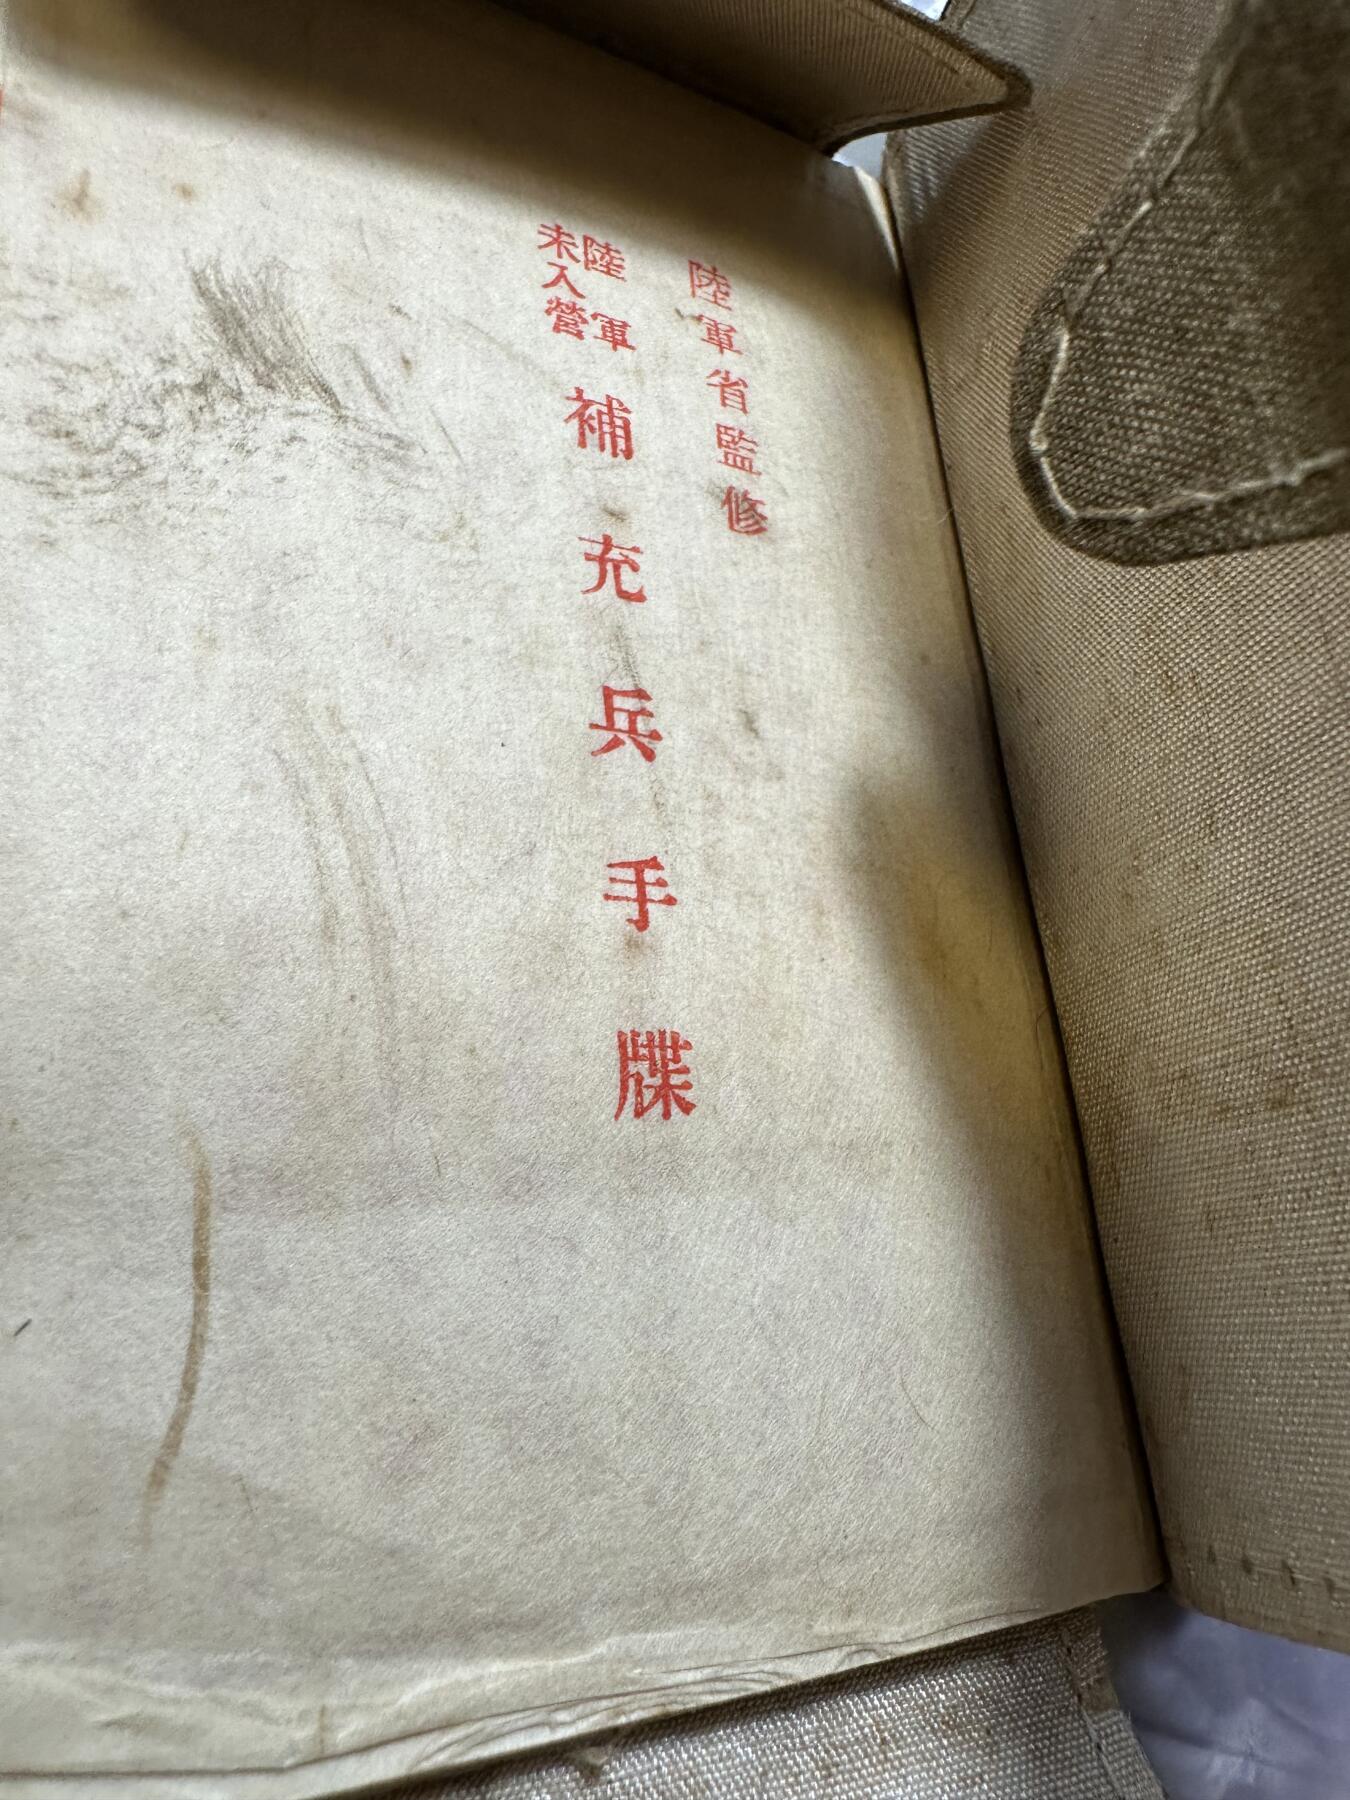 陸軍省監修
陸軍
未入營
補充兵手牒